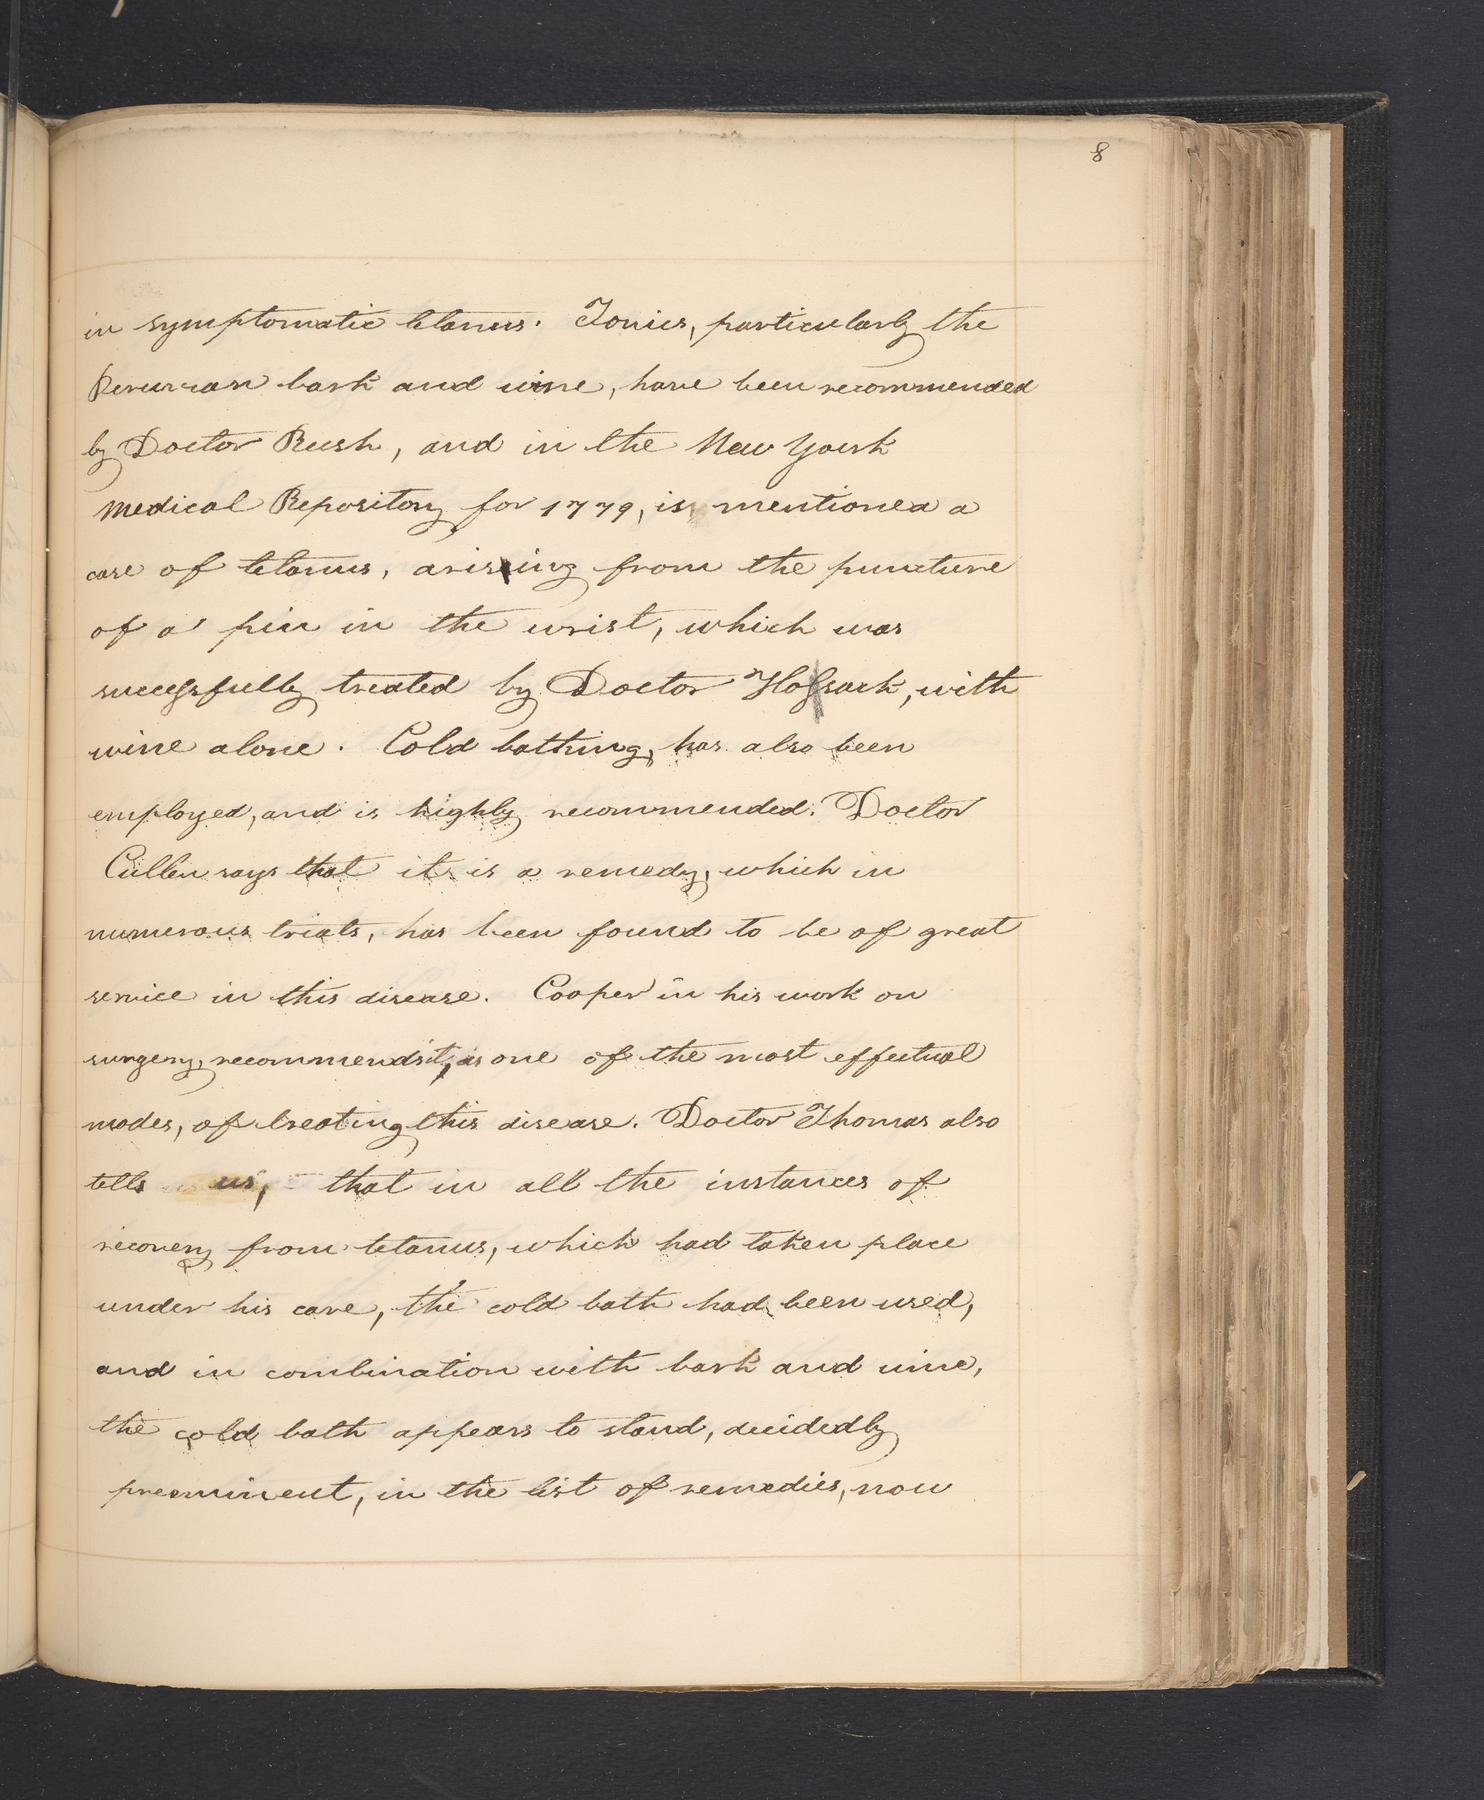 8
in symptomatic tetanus. Tonics, particularly the
Peruvian bark and wine, have been recommended
by Doctor Rush, and in the New York
Medical Repository for 1779, is mentioned a
case of tetanus, arising from the puncture
of a pin in the wrist, which was
successfully treated by Doctor Hossack, with
wine alone. Cold bathing, has also been
employed, and is highly recommended. Doctor
Cullen says that it is a remedy, which in
numerous trials, has been found to be of great
service in this disease. Cooper in his work on
surgery, recommends it, as one of the most effectual
modes, of treating this disease. Doctor Thomas also
tells us, that in all the instances of
recovery from tetanus, which had taken place
under his care, the cold bath had been used,
and in combination with bark and wine,
the cold bath appears to stand, decidedly
preeminent, in the list of remedies, now